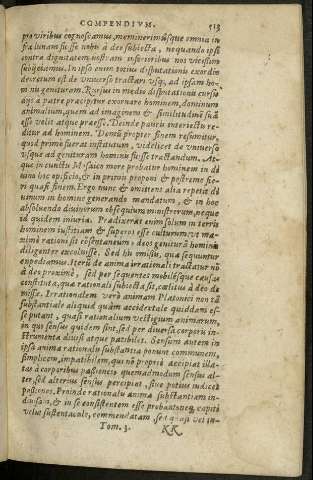 COMPENDIVM. 513
pro viribus cognoscamus, meminerimúsque omnia in
fra lunam fuisse nobis à deo subiecta, ne quando ipsi
contra dignitatem nostram inferioribus nos vicissim
subijciamus. In ipso enim totius disputationis exordio
decretum est de vniverso tractari vsq; ad ipsam homi
nis genituram. Rursus in media disputationis cursu
ais à patre præcipitur exornare hominem, dominum
animalium, quem ad imaginem & similitudinē suā
esse velit atque præesse. Deinde paucis interiectis re
ditur ad hominem. Demū propter finem resumitur,
quod prime fuerat institutum, videlicet de vniverso
vsque ad genituram hominis fuisse tractandum. At-
que in cunctis Mosaico more probatur hominem in di
uino hoc opificio, & in primis proponi & postremo fie-
ri quasi finem. Ergo nunc & omittent alia repetit di
uinum in homine generando mandatum, & in hoc
absoluendo diuinorum obsequium ministrorum, neque
id quidem iniuria. Prædixerat enim solum in terris
hominem iustitiam & superos esse culturum, vt ma-
ximè rationi sit consentaneum, deos genituræ hominis
diligenter excoluisse. Sed his omissis, quæ sequuntur
expediamus. Iterū de anima irrationali tractatur nō
à deo proximè, sed per sequentes mobilésque causas
constituta, quæ rationali subiecta sit, cælitus à deo de
missæ. Irrationalem verò animam Platonici non tā
substantiale aliquid quàm accidentale quiddam es-
se putant, quasi rationalium vestigium animarum,
in qui sensus quidem sint, sed per diuersa corporis in-
strumenta diuisi atque patibiles. Sensum autem in
ipsa animæ rationalis substantia ponunt communem,
simplicem, impatibilem, qui nō propriè accipiat illa-
tas à corporibus passiones quemadmodum sensus al-
ter, sed alterius sensus percipiat, siue potius iudicet
passiones. Proinde rationalis animæ substantiam in-
diuisam, & in se consistentem esse probant, neq; capiti
velut sustentaculo, commendatam, sed quasi vel in-
Tom. 3. KK